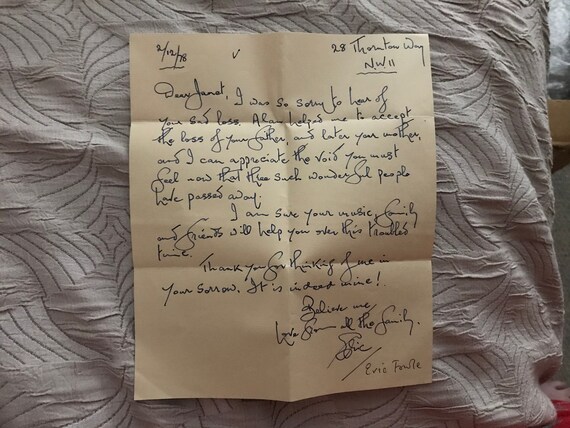 2/12/78 28 Thornton Way
NW11
Dear Janet, I was so sorry to hear of
your sad loss. Alan helped me to accept
the loss of your father, and later your mother,
and I can appreciate the void you must
feel now that three such wonderful people
have passed away.
I am sure your music, family
and friends will help you over this troubled
time.
Thank you for thinking of me in
your sorrow. It is indeed mine!
Believe me
love from all the family.
Eric
Eric Fowle